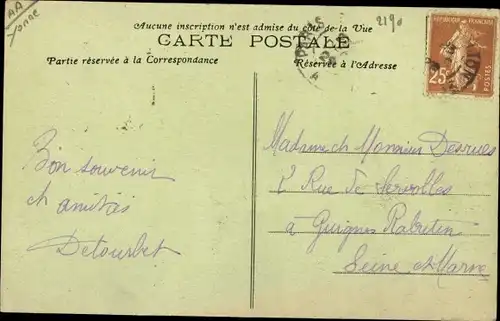 AA
Yonne
2190
Aucune inscription n'est admise du côté de la Vue
CARTE POSTALE
Partie réservée à la Correspondance
Réservée à l'Adresse
REPUBLIQUE FRANÇAISE
25c
POSTES
Bon souvenir
et amitiés
Detourbet
Madame et Monsieur Desrues
2 Rue de
à Guignes Rabutin
Seine et Marne